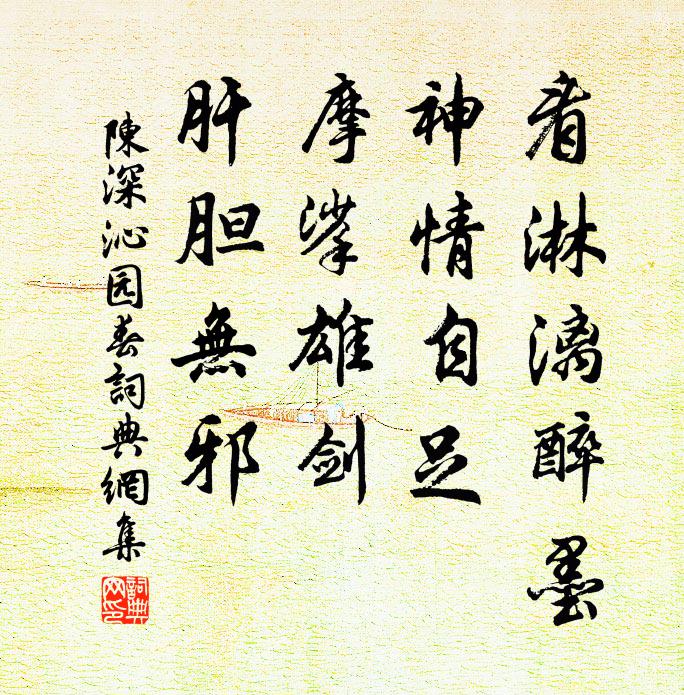 看淋漓醉墨
神情自足
摩挲雄剑
肝胆無邪
陳深沁园春詞典網集
詞典
网印